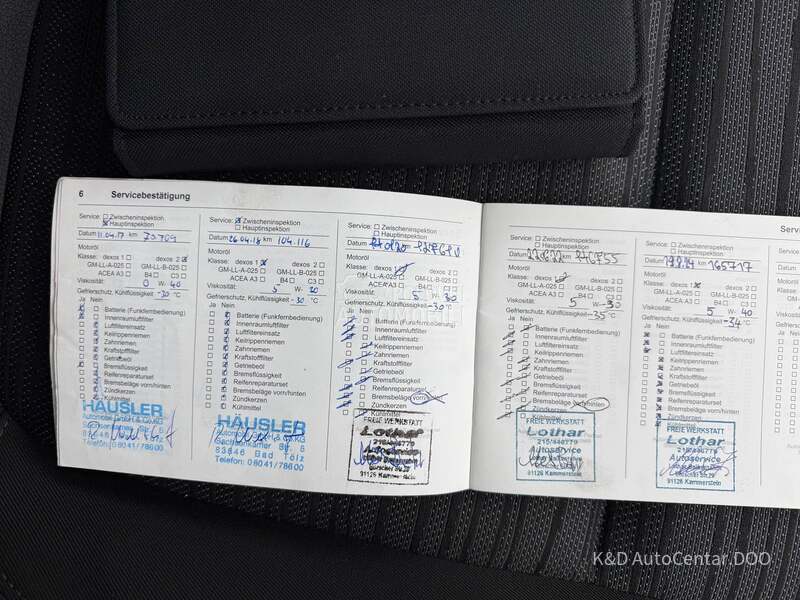 6 Servicebestätigung
Service: Zwischeninspektion
Hauptinspektion
Datum 11.04.17 km 70.709
Motoröl
Klasse: dexos 1 dexos 2
GM-LL-A-025 GM-LL-B-025
ACEA A3 B4 C3
Viskosität: 0 W- 40
Gefrierschutz, Kühlflüssigkeit -30 °C
Ja Nein
Batterie (Funkfernbedienung)
Innenraumluftfilter
Luftfiltereinsatz
Keilrippenriemen
Zahnriemen
Kraftstofffilter
Getriebeöl
Bremsflüssigkeit
Reifenreparaturset
Bremsbeläge vorn/hinten
Zündkerzen
Kühlmittel
HÄUSLER
Automobile GmbH & Co KG
Sachsenkamer Str.
83646 Bad Tölz
Telefon: 08041/78600
Service: Zwischeninspektion
Hauptinspektion
Datum 26.04.18 km 104.116
Motoröl
Klasse: dexos 1 dexos 2
GM-LL-A-025 GM-LL-B-025
ACEA A3 B4 C3
Viskosität: 5 W- 30
Gefrierschutz, Kühlflüssigkeit -30 °C
Ja Nein
Batterie (Funkfernbedienung)
Innenraumluftfilter
Luftfiltereinsatz
Keilrippenriemen
Zahnriemen
Kraftstofffilter
Getriebeöl
Bremsflüssigkeit
Reifenreparaturset
Bremsbeläge vorn/hinten
Zündkerzen
Kühlmittel
HÄUSLER
Sachsenkamer Str. 6
83646 Bad Tölz
Telefon: 08041/78600
Service: Zwischeninspektion
Hauptinspektion
Datum km
Motoröl
Klasse: dexos 1 dexos 2
GM-LL-A-025 GM-LL-B-025
ACEA A3 B4 C3
Viskosität: 5 W- 30
Gefrierschutz, Kühlflüssigkeit -30 °C
Ja Nein
Batterie (Funkfernbedienung)
Innenraumluftfilter
Luftfiltereinsatz
Keilrippenriemen
Zahnriemen
Kraftstofffilter
Getriebeöl
Bremsflüssigkeit
Reifenreparaturset
Bremsbeläge vorn/hinten
Zündkerzen
Kühlmittel
FREIE WERKSTATT
Lothar
Autoservice
91126 Kammerstein
Service: Zwischeninspektion
Hauptinspektion
Datum km
Motoröl
Klasse: dexos 1 dexos 2
GM-LL-A-025 GM-LL-B-025
ACEA A3 B4 C3
Viskosität: 5 W- 30
Gefrierschutz, Kühlflüssigkeit -35 °C
Ja Nein
Batterie (Funkfernbedienung)
Innenraumluftfilter
Luftfiltereinsatz
Keilrippenriemen
Zahnriemen
Kraftstofffilter
Getriebeöl
Bremsflüssigkeit
Reifenreparaturset
Bremsbeläge vorn/hinten
Zündkerzen
Kühlmittel
FREIE WERKSTATT
Lothar
Autoservice
91126 Kammerstein
Service: Zwischeninspektion
Hauptinspektion
Datum km 165717
Motoröl
Klasse: dexos 1 dexos 2
GM-LL-A-025 GM-LL-B-025
ACEA A3 B4 C3
Viskosität: 5 W- 40
Gefrierschutz, Kühlflüssigkeit -34 °C
Ja Nein
Batterie (Funkfernbedienung)
Innenraumluftfilter
Luftfiltereinsatz
Keilrippenriemen
Zahnriemen
Kraftstofffilter
Getriebeöl
Bremsflüssigkeit
Reifenreparaturset
Bremsbeläge vorn/hinten
Zündkerzen
Kühlmittel
FREIE WERKSTATT
Lothar
Autoservice
91126 Kammerstein
K&D AutoCentar.DOO